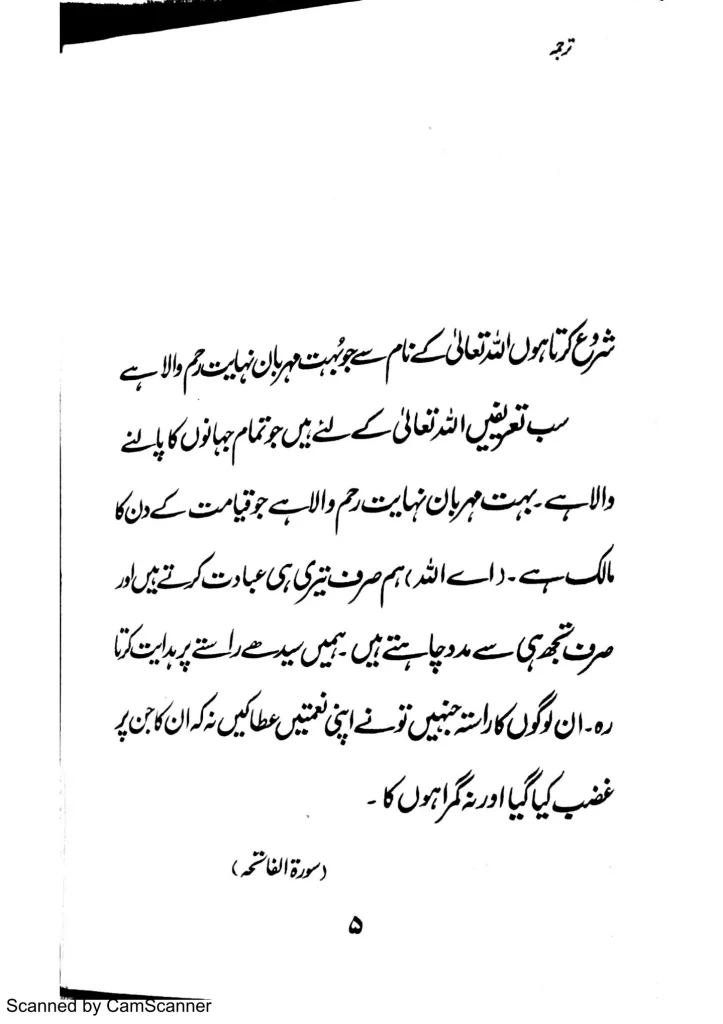 ترجمہ
شروع کرتا ہوں اللہ تعالیٰ کے نام سے جو بُہت مہربان نہایت رحم والا ہے
سب تعریفیں اللہ تعالیٰ کے لئے ہیں جو تمام جہانوں کا پالنے
والا ہے ۔ بہت مہربان نہایت رحم والا ہے جو قیامت کے دن کا
مالک ہے ۔ (اے اللہ) ہم صرف تیری ہی عبادت کرتے ہیں اور
صرف تجھ ہی سے مدد چاہتے ہیں ۔ ہمیں سیدھے راستے پر ہدایت کرتا
رہ ۔ ان لوگوں کا راستہ جنہیں تو نے اپنی نعمتیں عطا کیں نہ کہ ان کا جن پر
غضب کیا گیا اور نہ گمراہوں کا ۔
(سورۃ الفاتحہ)
۵
Scanned by CamScanner